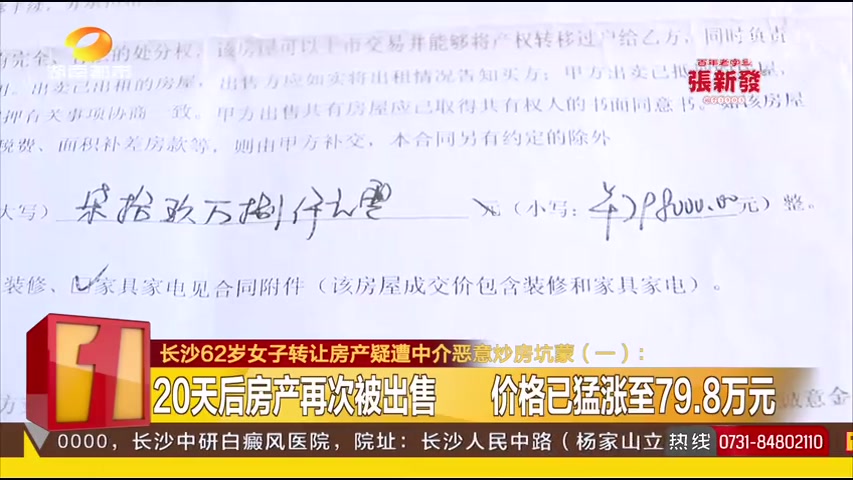 有完全、合法的处分权，该房屋可以上市交易并能够将产权转移过户给乙方，同时负责
出卖已出租的房屋，出售方应如实将出租情况告知买方；甲方出卖已抵
湖南都市
百年老字号
張新發
押有关事项协商一致。甲方出售共有房屋应已取得共有权人的书面同意书。如该房屋
税费、面积补差房款等，则由甲方补交，本合同另有约定的除外
大写）柒拾玖万捌仟元
元（小写：￥798000.00元）整。
装修、家具家电见合同附件（该房屋成交价包含装修和家具家电）。
1
长沙62岁女子转让房产疑遭中介恶意炒房坑蒙（一）：
20天后房产再次被出售 价格已猛涨至79.8万元
诚意金
0000，长沙中研白癜风医院，院址：长沙人民中路（杨家山立
热线 0731-84802110